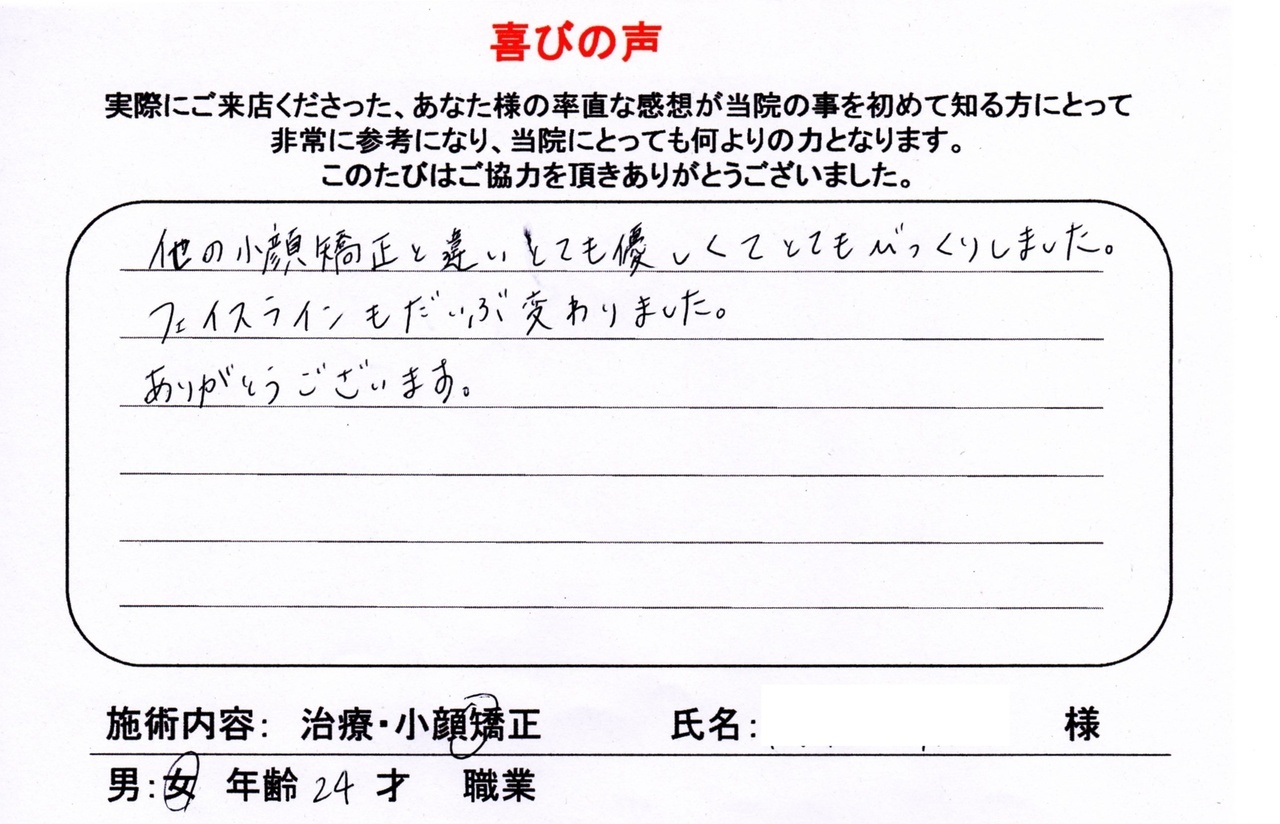 喜びの声
実際にご来店くださった、あなた様の率直な感想が当院の事を初めて知る方にとって
非常に参考になり、当院にとっても何よりの力となります。
このたびはご協力を頂きありがとうございました。
他の小顔矯正と違いとても優しくてとてもびっくりしました。
フェイスラインもだいぶ変わりました。
ありがとうございます。
施術内容： 治療・小顔矯正 氏名： 様
男：女 年齢 24 才 職業